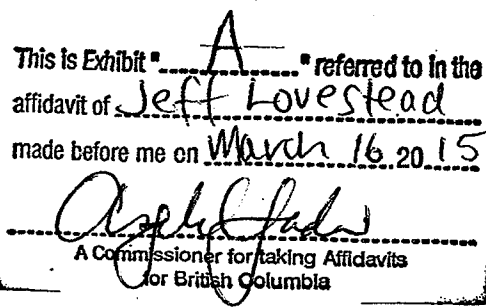 This is Exhibit "A" referred to in the
affidavit of Jeff Lovestead
made before me on March 16 20 15
A Commissioner for taking Affidavits
for British Columbia